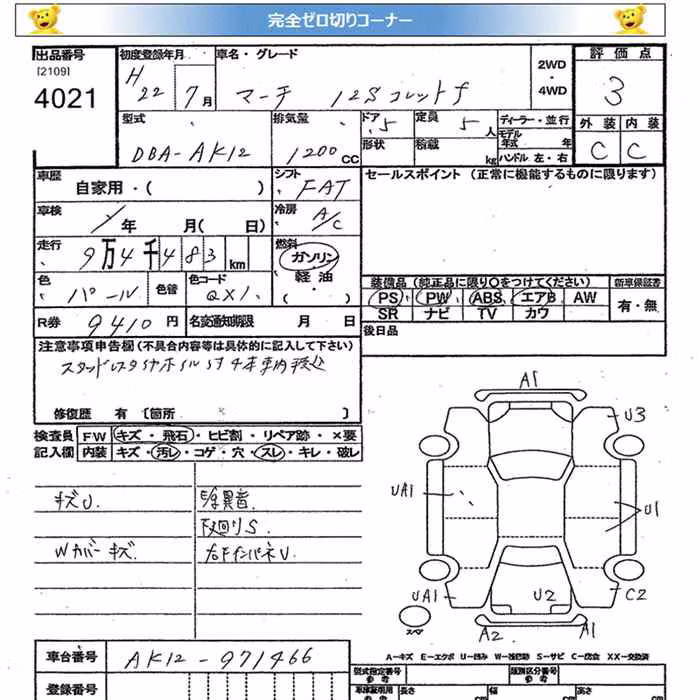 完全ゼロ切りコーナー
出品番号
[2109]
4021
初度登録年月
H
22
7月
車名・グレード
マーチ 12S コレットf
2WD
・
4WD
評価点
3
外装 内装
C C
型式
DBA-AK12
排気量
1200CC
ドア
5
定員
5人
形状
積載
kg
ディーラー・並行
モデル
年式
年
ハンドル 左・右
車歴
自家用・( )
シフト
FAT
セールスポイント (正常に機能するものに限ります)
車検
年 月( 日)
冷房
A/C
走行
9万4千483km
燃料
ガソリン
軽油
・
色
パール
色替
色コード
QX1
装備品 (純正品に限り○をつけてください)
新車保証書
PS PW ABS エアB AW
SR ナビ TV カワ
有・無
R券 9410円
名変通知期限 月 日
後日品
注意事項申告欄(不具合内容等は具体的に記入して下さい)
修復歴 有〔箇所 〕
検査員 FW キズ・飛石・ヒビ割・リペア跡・×要
記入欄 内装 キズ・汚レ・コゲ・穴・スレ・キレ・破レ
キズU
異音
下廻りS
Wカバーキズ
右FインパネU
A1
U3
UA1
U1
UA1
U2
C2
スペア
A2
A1
A-キズ E-エクボ U-凹み W-補修跡 S-サビ C-腐食 XX-交換済
車台番号
AK12-971466
登録番号
型式指定番号
参考
類別区分番号
参考
長さ
cm
幅
cm
高さ
cm